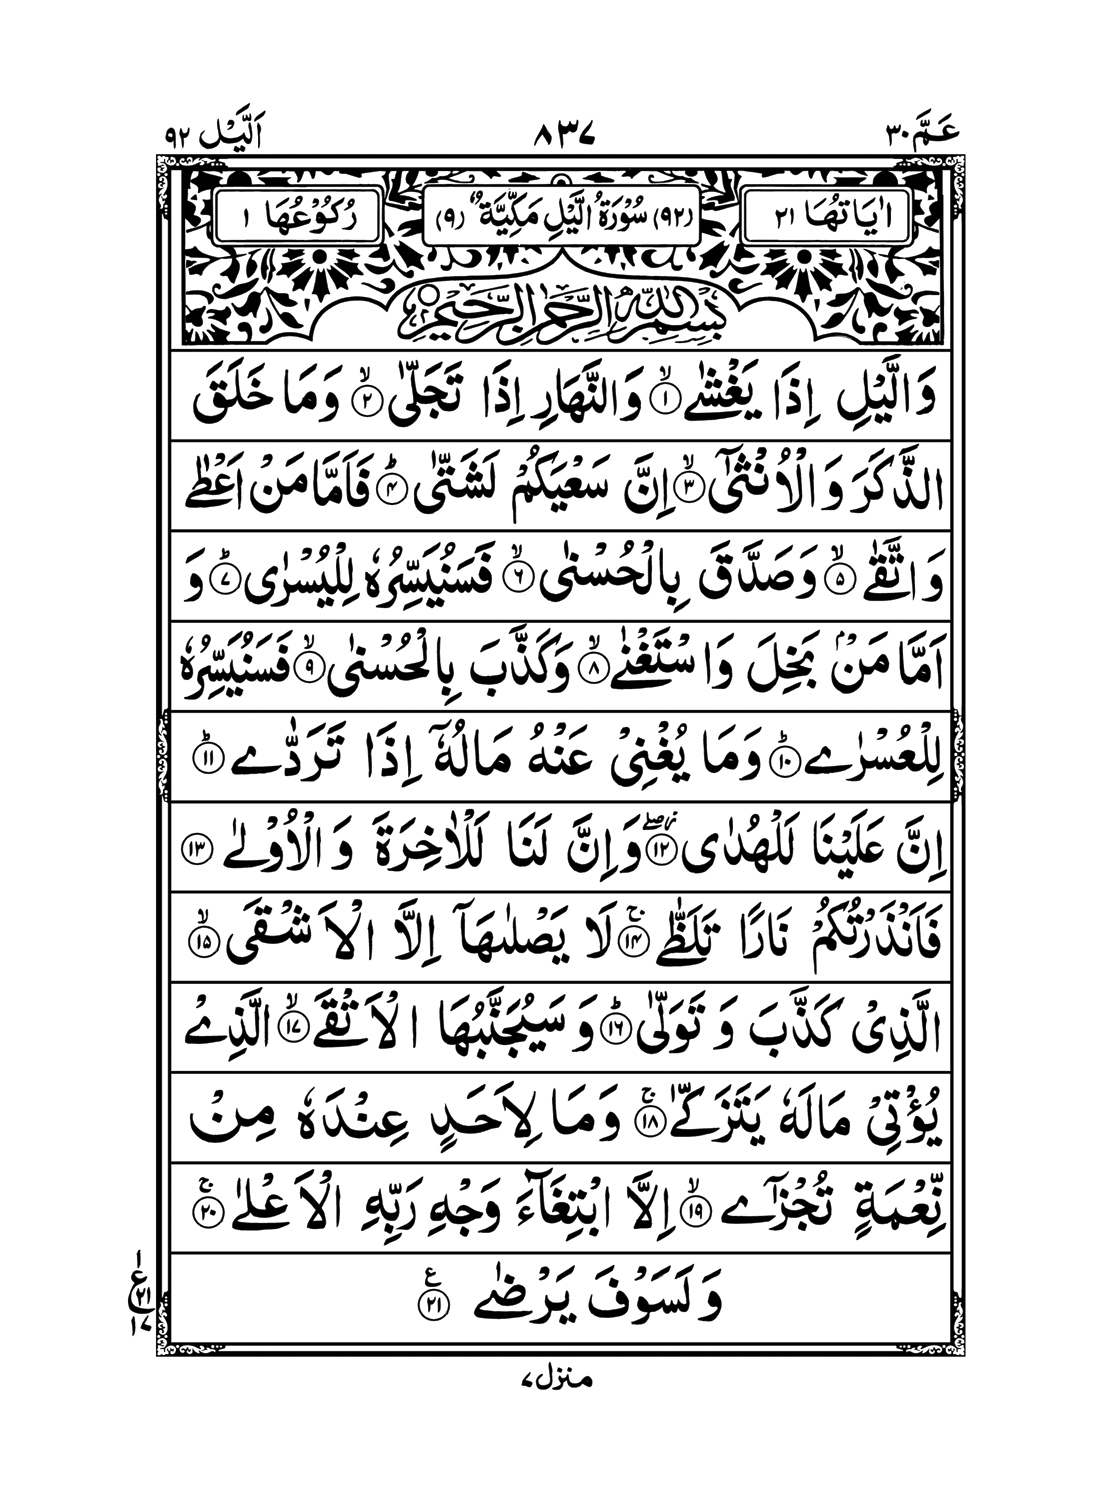 عَمَّ ۳۰ ۸۳۷ اَلَّيْل ۹۲
اٰيَاتُهَا ۲۱ (۹۲) سُوْرَةُ الَّيْلِ مَكِّيَّةٌ (۹) رُكُوْعُهَا ۱
بِسْمِ اللّٰهِ الرَّحْمٰنِ الرَّحِيْمِ
وَالَّيْلِ اِذَا يَغْشٰى ۙ﴿۱﴾ وَالنَّهَارِ اِذَا تَجَلّٰى ۙ﴿۲﴾ وَمَا خَلَقَ
الذَّكَرَ وَالْاُنْثٰٓى ۙ﴿۳﴾ اِنَّ سَعْيَكُمْ لَشَتّٰى ؕ﴿۴﴾ فَاَمَّا مَنْ اَعْطٰى
وَاتَّقٰى ۙ﴿۵﴾ وَصَدَّقَ بِالْحُسْنٰى ۙ﴿۶﴾ فَسَنُيَسِّرُهٗ لِلْيُسْرٰى ؕ﴿۷﴾ وَ
اَمَّا مَنْۢ بَخِلَ وَاسْتَغْنٰى ۙ﴿۸﴾ وَكَذَّبَ بِالْحُسْنٰى ۙ﴿۹﴾ فَسَنُيَسِّرُهٗ
لِلْعُسْرٰى ؕ﴿۱۰﴾ وَمَا يُغْنِىْ عَنْهُ مَالُهٗٓ اِذَا تَرَدّٰى ؕ﴿۱۱﴾
اِنَّ عَلَيْنَا لَلْهُدٰى ۖ﴿۱۲﴾ وَاِنَّ لَنَا لَلْاٰخِرَةَ وَالْاُوْلٰى ﴿۱۳﴾
فَاَنْذَرْتُكُمْ نَارًا تَلَظّٰى ۚ﴿۱۴﴾ لَا يَصْلٰىهَآ اِلَّا الْاَشْقَى ۙ﴿۱۵﴾
الَّذِىْ كَذَّبَ وَتَوَلّٰى ؕ﴿۱۶﴾ وَسَيُجَنَّبُهَا الْاَتْقَى ۙ﴿۱۷﴾ الَّذِىْ
يُؤْتِىْ مَالَهٗ يَتَزَكّٰى ۚ﴿۱۸﴾ وَمَا لِاَحَدٍ عِنْدَهٗ مِنْ
نِّعْمَةٍ تُجْزٰٓى ۙ﴿۱۹﴾ اِلَّا ابْتِغَآءَ وَجْهِ رَبِّهِ الْاَعْلٰى ۚ﴿۲۰﴾
وَلَسَوْفَ يَرْضٰى ﴿۲۱﴾ ع
۱
ع ۲۱
۱۷
منزل ۷